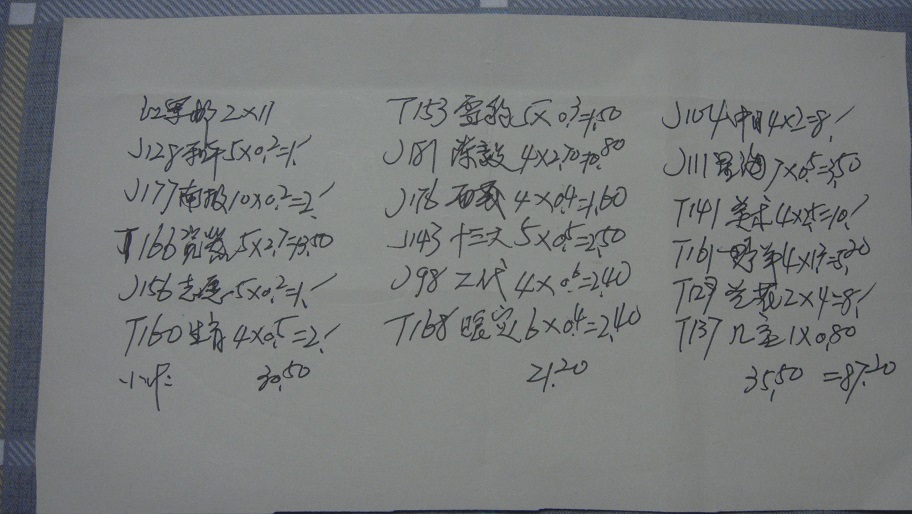 红军邮 2×11
J128和平5×0.2=1./
J177南极10×0.2=2./
T166瓷器5×2.7=13.50
J156志愿5×0.2=1./
T160生育4×0.5=2./
小计: 30.50
T153雪豹5×0.3=1.50
J181陈毅4×2.70=10.80
J176西藏4×0.4=1.60
J143十三大5×0.5=2.50
J98工代4×0.6=2.40
T168赈灾6×0.4=2.40
21.20
J104中日4×2=8./
J111星海7×0.5=3.50
T141美术4×2.5=10./
T161野羊4×1.3=5.20
T129兰花2×4=8./
T137儿童1×0.80
35.50 =87.20